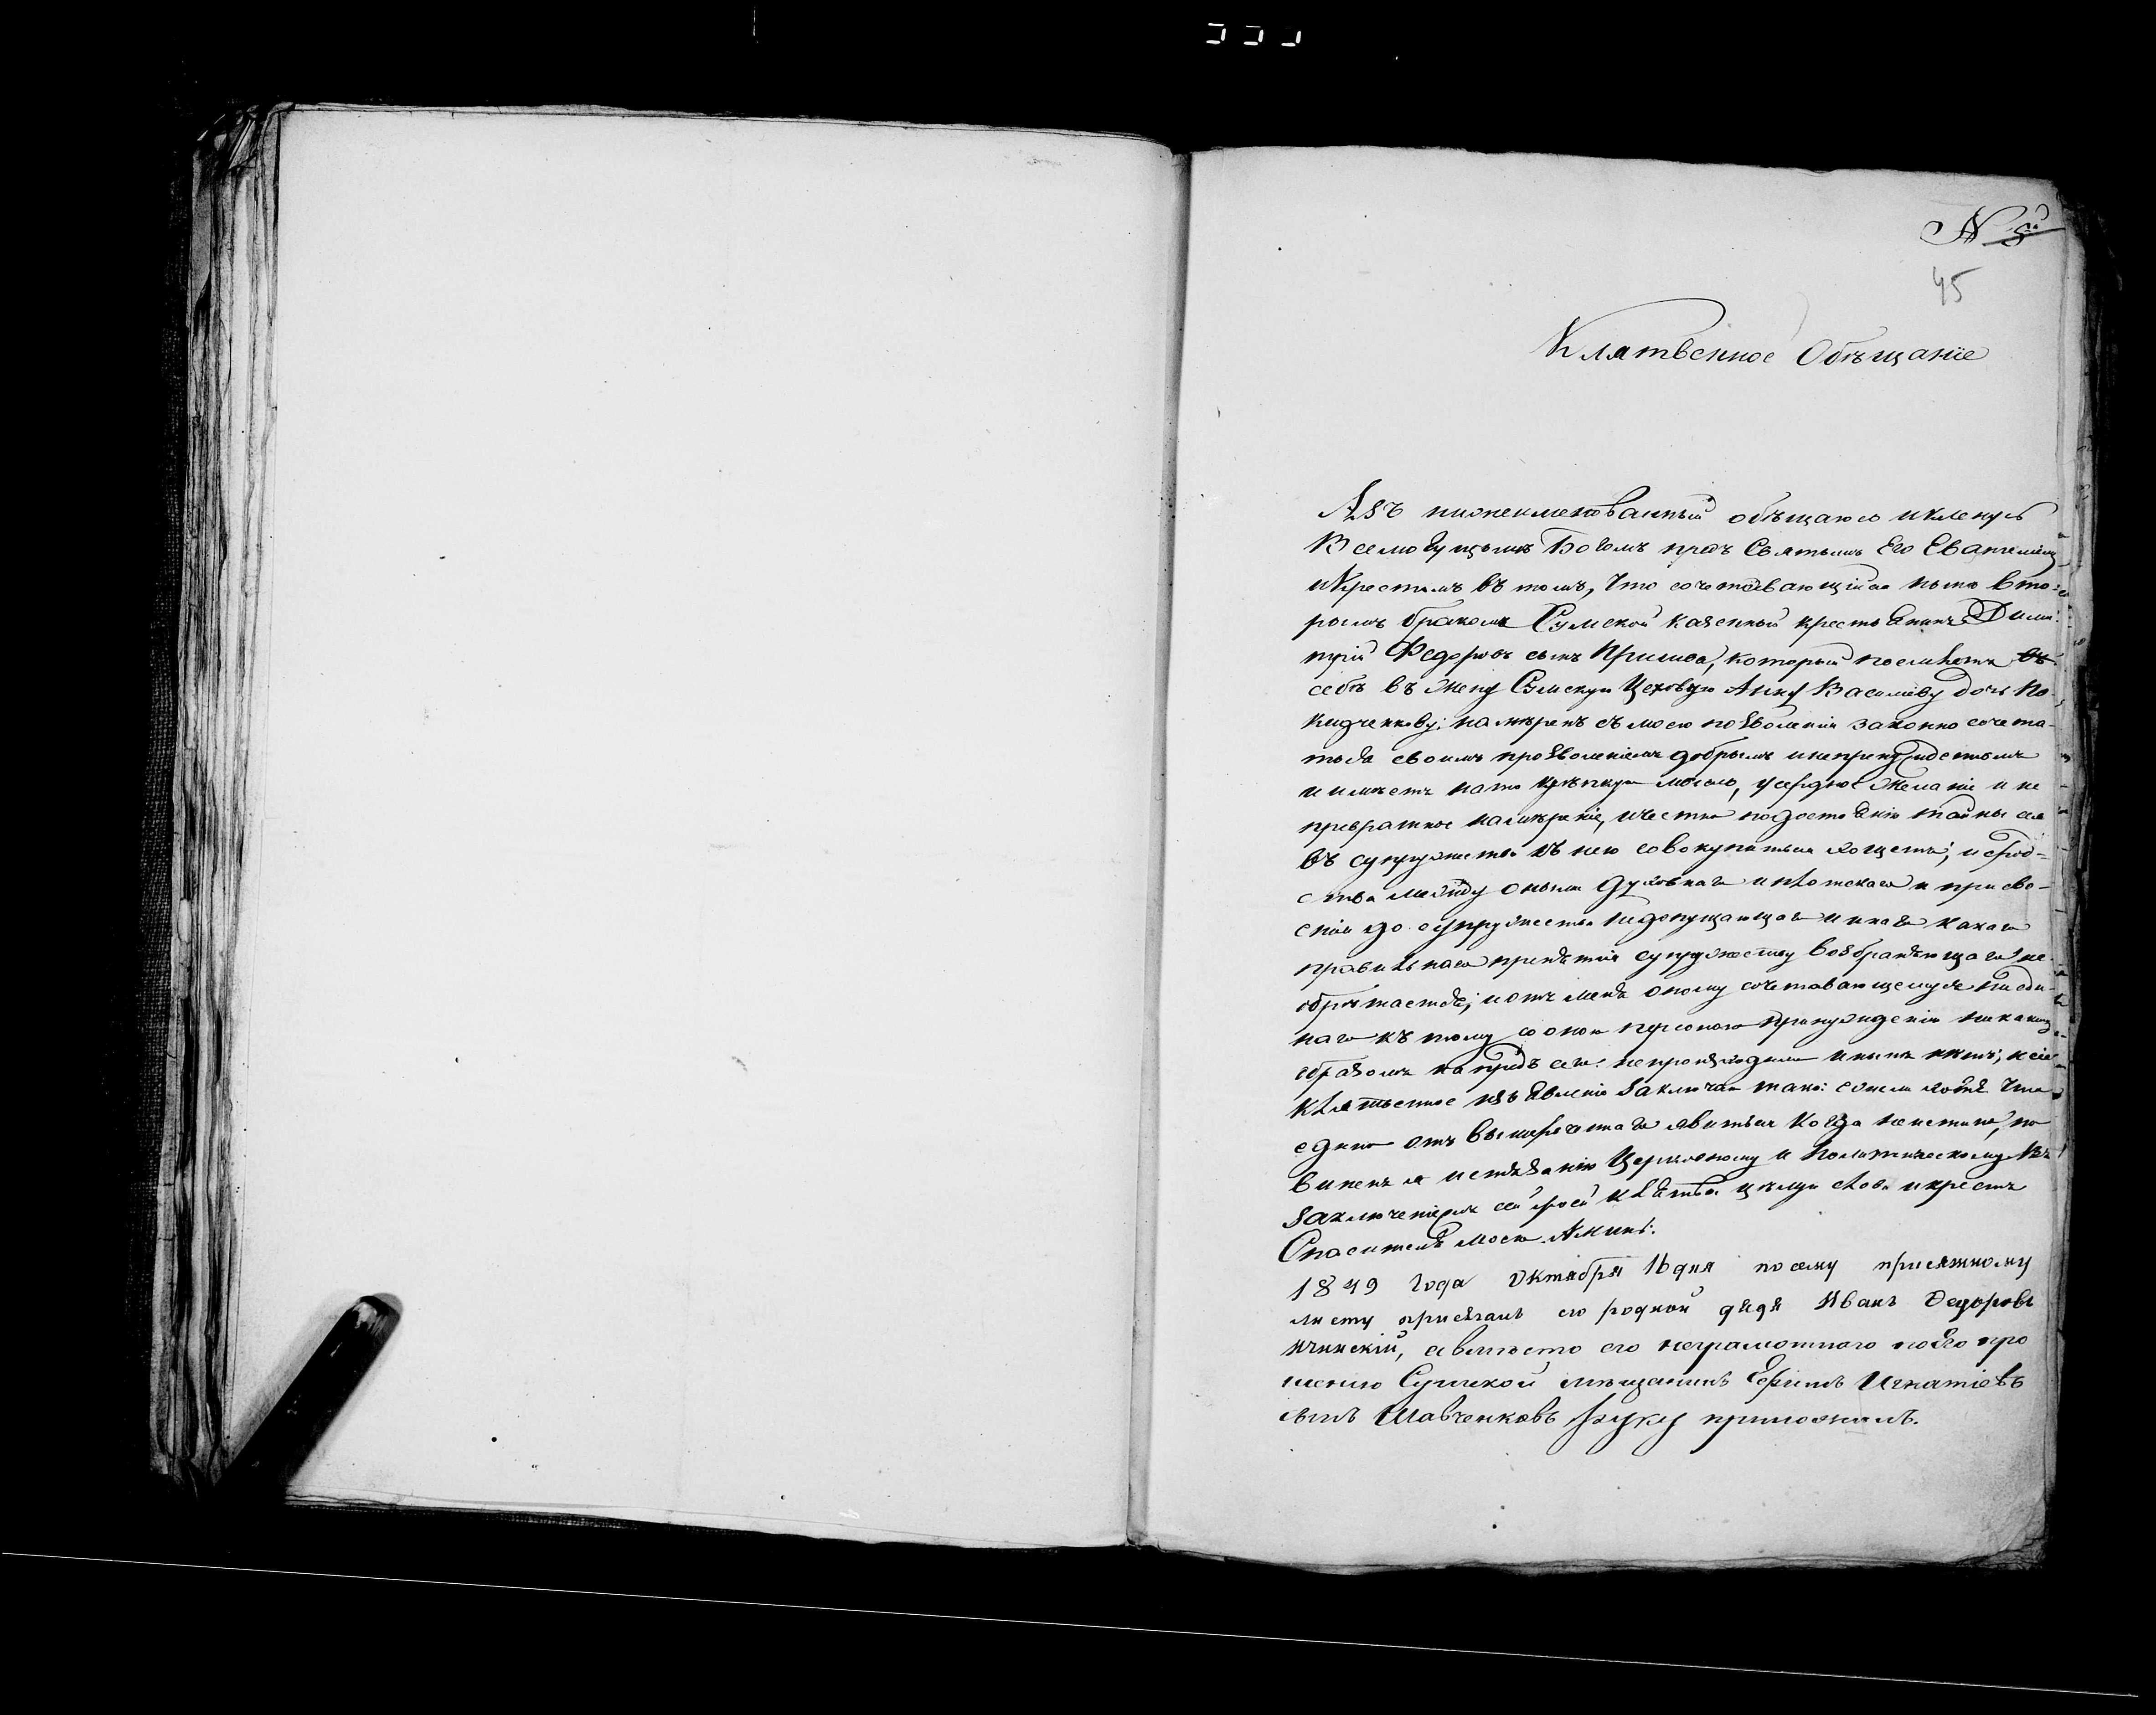 № 8й
45
Клятвенное Обѣщаніе
Азъ нижеименованный обѣщаюсь и кленусь
Всемогущимъ Богомъ предъ Святымъ Его Евангеліемъ
и Крестомъ въ томъ, что сочетавающійся нынѣ вто-
рымъ бракомъ Сумской казенный крестьянинъ Дими-
трій Федоровъ сынъ который поемлетъ
себѣ въ жену Сумскую Цеховую Анну Васильеву дочь По-
намѣренъ съ моею позволенія законно сочета-
ться своимъ произволеніемъ добрымъ и непринужденнымъ
и имѣетъ на то крѣпкую мысль, усердное желаніе и не
превратное намѣреніе, и честно по достоянію тайны сея
въ супружество съ нею совокупиться хощетъ; и срод-
ства между оными духовнаго и плотскаго и присво-
енія до супружества недопущающаго и инаго какаго
правильнаго препятія супружеству возбраняющаго не
обрѣтается; и отъ меня оному сочетавающемуся ни еди-
наго къ тому со оною персоною принужденія никакимъ
образомъ напредъ сего непроизходило и нынѣ нѣтъ; и сіе
клятвенное изъявленіе заключаю тако: ежели хотя что
едино отъ вышереченнаго явиться когда неистинно, по
виненъ я истязанію Церковному и Политическому Въ
заключеніе сей моей клятвы цѣлую слова и крестъ
Спасителя моего. Аминь.
1849 года Октября 16 дня по сему присяжному
листу присягалъ его родной дядя Иванъ Федоровъ
а вмѣсто его неграмотнаго по его про
шенію Сумской мѣщанинъ Ефимъ Игнатіевъ
сынъ Шавченковъ руку приложилъ.